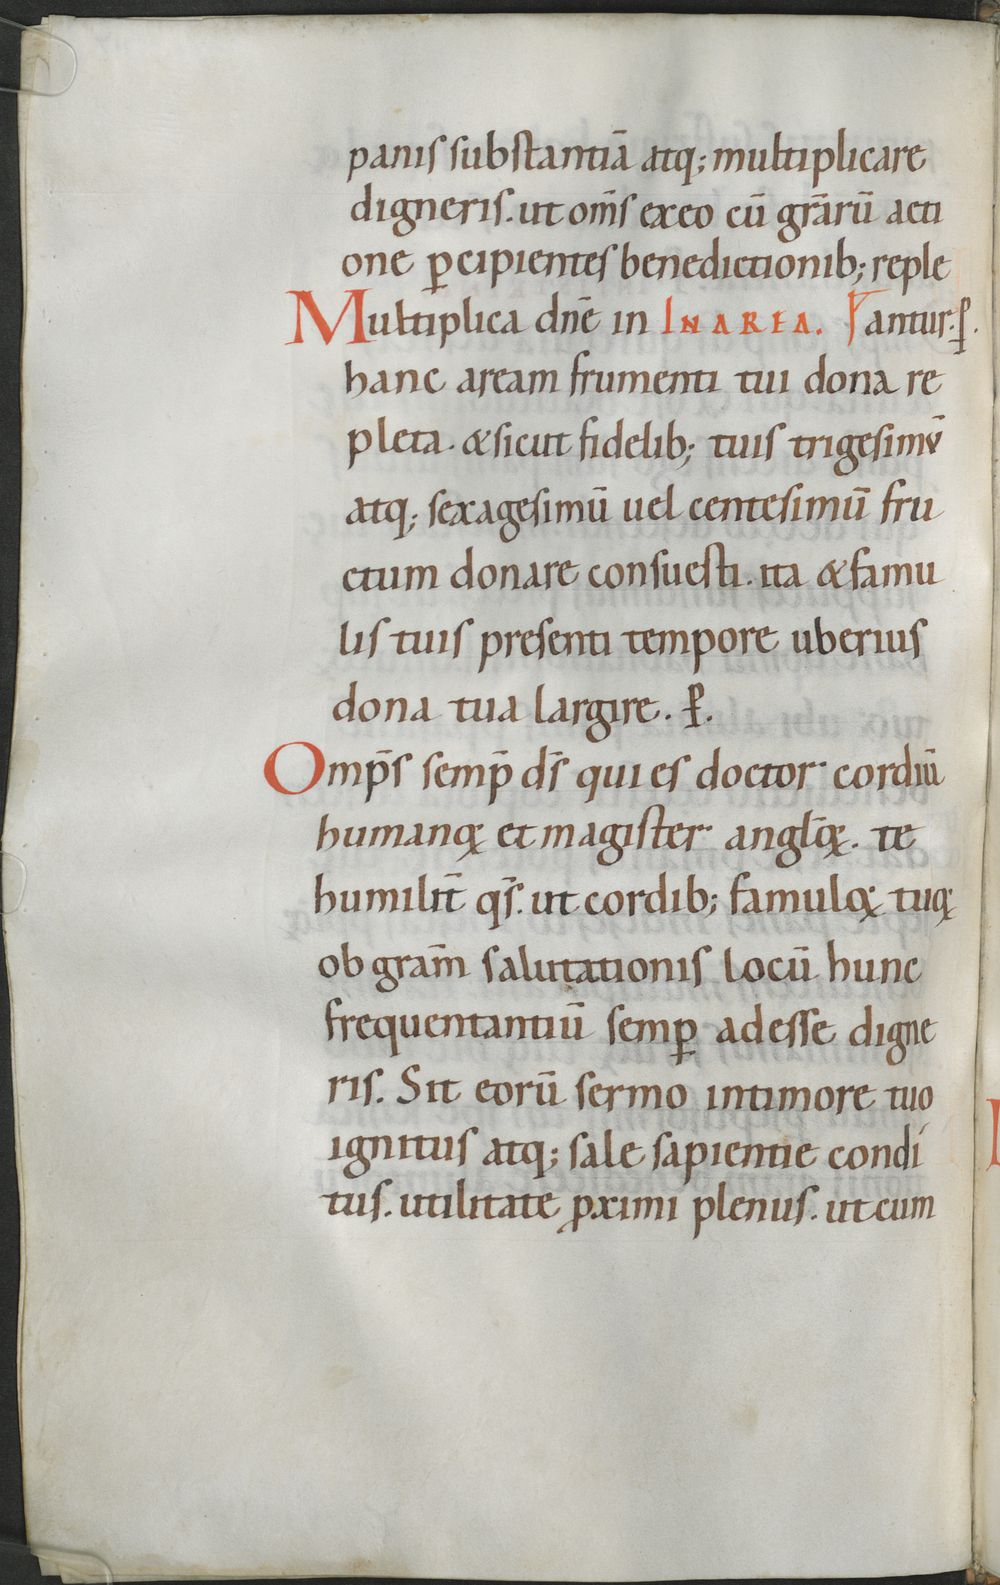 panis substantiā atq; multiplicare
digneris. ut om̄s ex eo cū grārū acti
one ꝑcipientes benedictionib; reple
Multiplica dn̄e in IN AREA. antur. ꝑ.
hanc aream frumenti tui dona re
pleta. & sicut fidelib; tuis trigesimū
atq; sexagesimū uel centesimū fru
ctum donare consuesti. ita & famu
lis tuis presenti tempore uberius
dona tua largire. ꝑ.
Omp̄s semp̄ ds̄ qui es doctor cordiū
humanoꝝ et magister angl̄oꝝ. te
humilit̄ qs̄. ut cordib; famuloꝝ tuoꝝ
ob gram̄ salutationis locū hunc
frequentantiū semꝑ adesse digne
ris. Sit eorū sermo in timore tuo
ignitus atq; sale sapientie condi
tus. utilitate ꝓximi plenus. ut cum